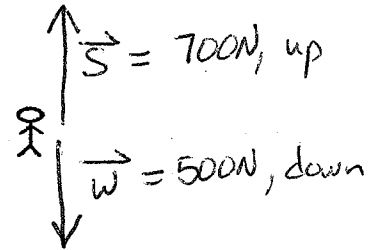 S⃗ = 700N, up
w⃗ = 500N, down